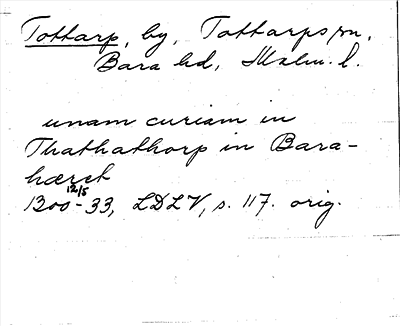 Tottarp, by, Tottarps sn,
Bara hd, Malm. l.
unam curiam in
Thathathorp in Bara-
hæret
12/5
1300-33, LDLV, s. 117. orig.